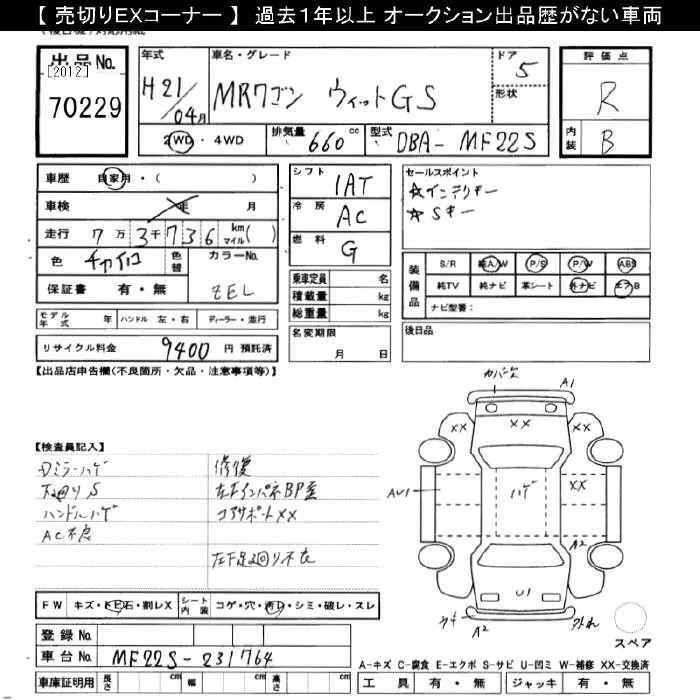 【 売切りEXコーナー 】 過去1年以上 オークション出品歴がない車両
出品No.
[2012]
70229
年式 H21/04月
車名・グレード MRワゴン ウィットGS
ドア 5
形状
評価点 R
内装 B
2WD・4WD
排気量 660 cc
型式 DBA- MF22S
車歴 自家用・( )
車検 年 月
走行 7万3千736 km マイル( )
色 チャイロ
色替
カラーNo. ZEL
保証書 有・無
モデル年式 年
ハンドル 左・右
ディーラー・並行
リサイクル料金 9400 円 預託済
シフト 1AT
冷房 AC
燃料 G
乗車定員 名
積載量 kg
総重量 kg
名変期限
月 日
セールスポイント
☆インテリキー
☆Sキー
装備品
S/R 純A/W P/S P/W ABS
純TV 純ナビ 革シート 外ナビ エアB
ナビ型番:
後日品
【出品店申告欄(不良箇所・欠品・注意事項等)】
【検査員記入】
Dミラーハゲ
下廻りS
ハンドルハゲ
AC不良
修復
コアサポートXX
A1
XX
XX
XX
XX
ハゲ
AU1
A2
U1
A2
スペア
FW キズ・トビ石・割レX
シート内装 コゲ・穴・汚レ・シミ・破レ・スレ
登録No.
車台No. MF22S-231764
車庫証明用 長さ cm 幅 cm 高さ cm
A-キズ C-腐食 E-エクボ S-サビ U-凹ミ W-補修 XX-交換済
工具 有・無 ジャッキ 有・無